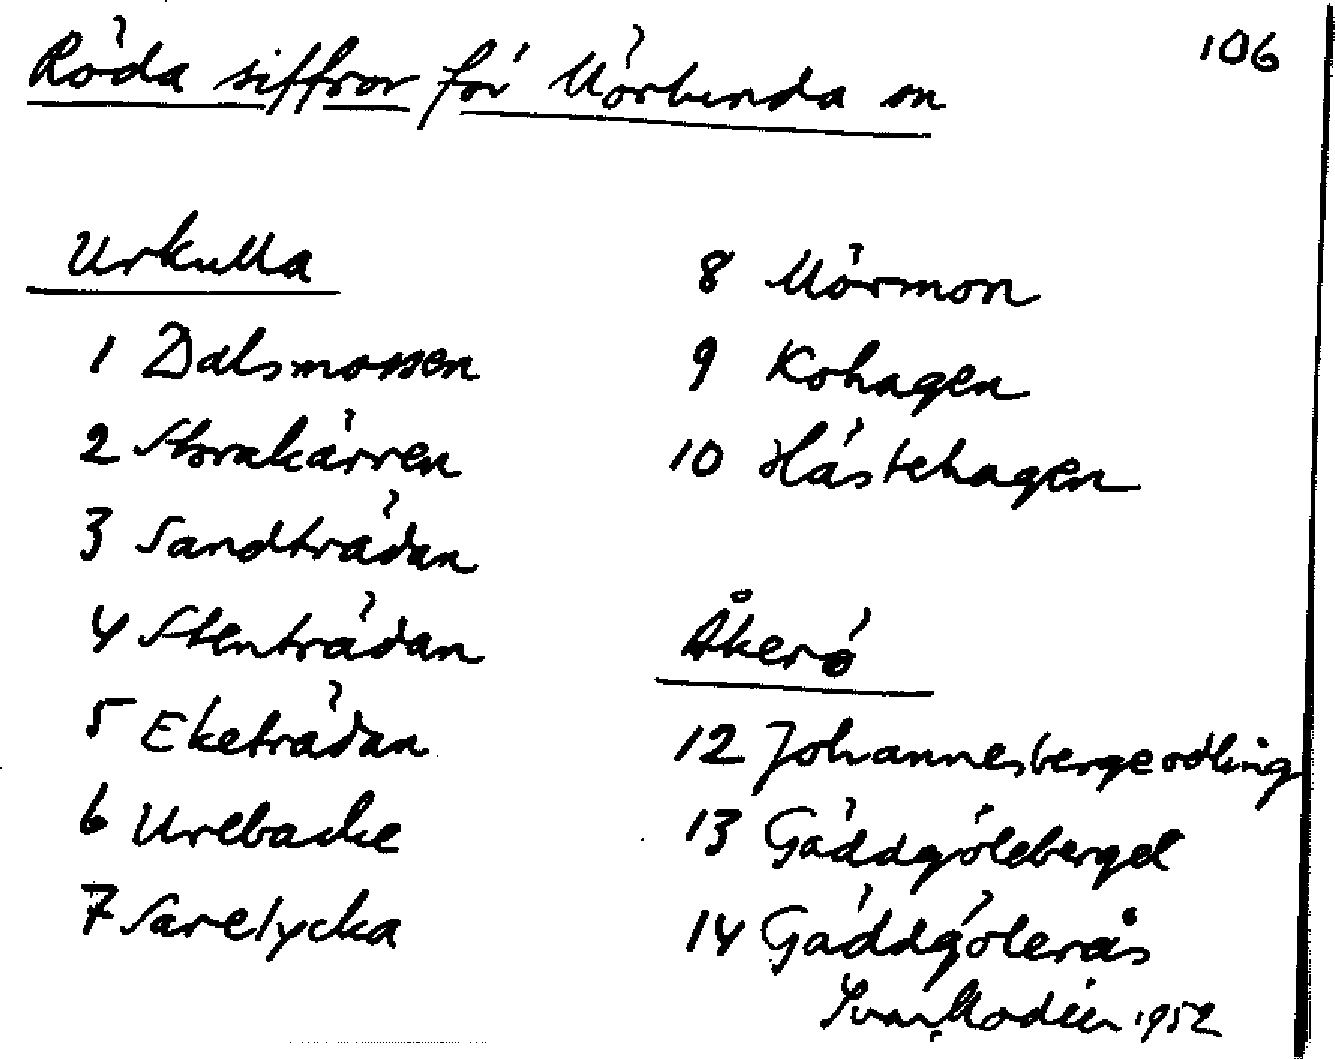 106
Röda siffror för Mörbunda sn
Urkulla
1 Dalsmossen
2 Storakärren
3 Sandträdan
4 Stenträdan
5 Eketrädan
6 Urebacke
7 Sarelycka
8 Mörmon
9 Kohagen
10 Hästehagen
Åkerö
12 Johannesbergeodling
13 Gäddgöleberget
14 Gäddgölerås
Ivar Modéer 1952